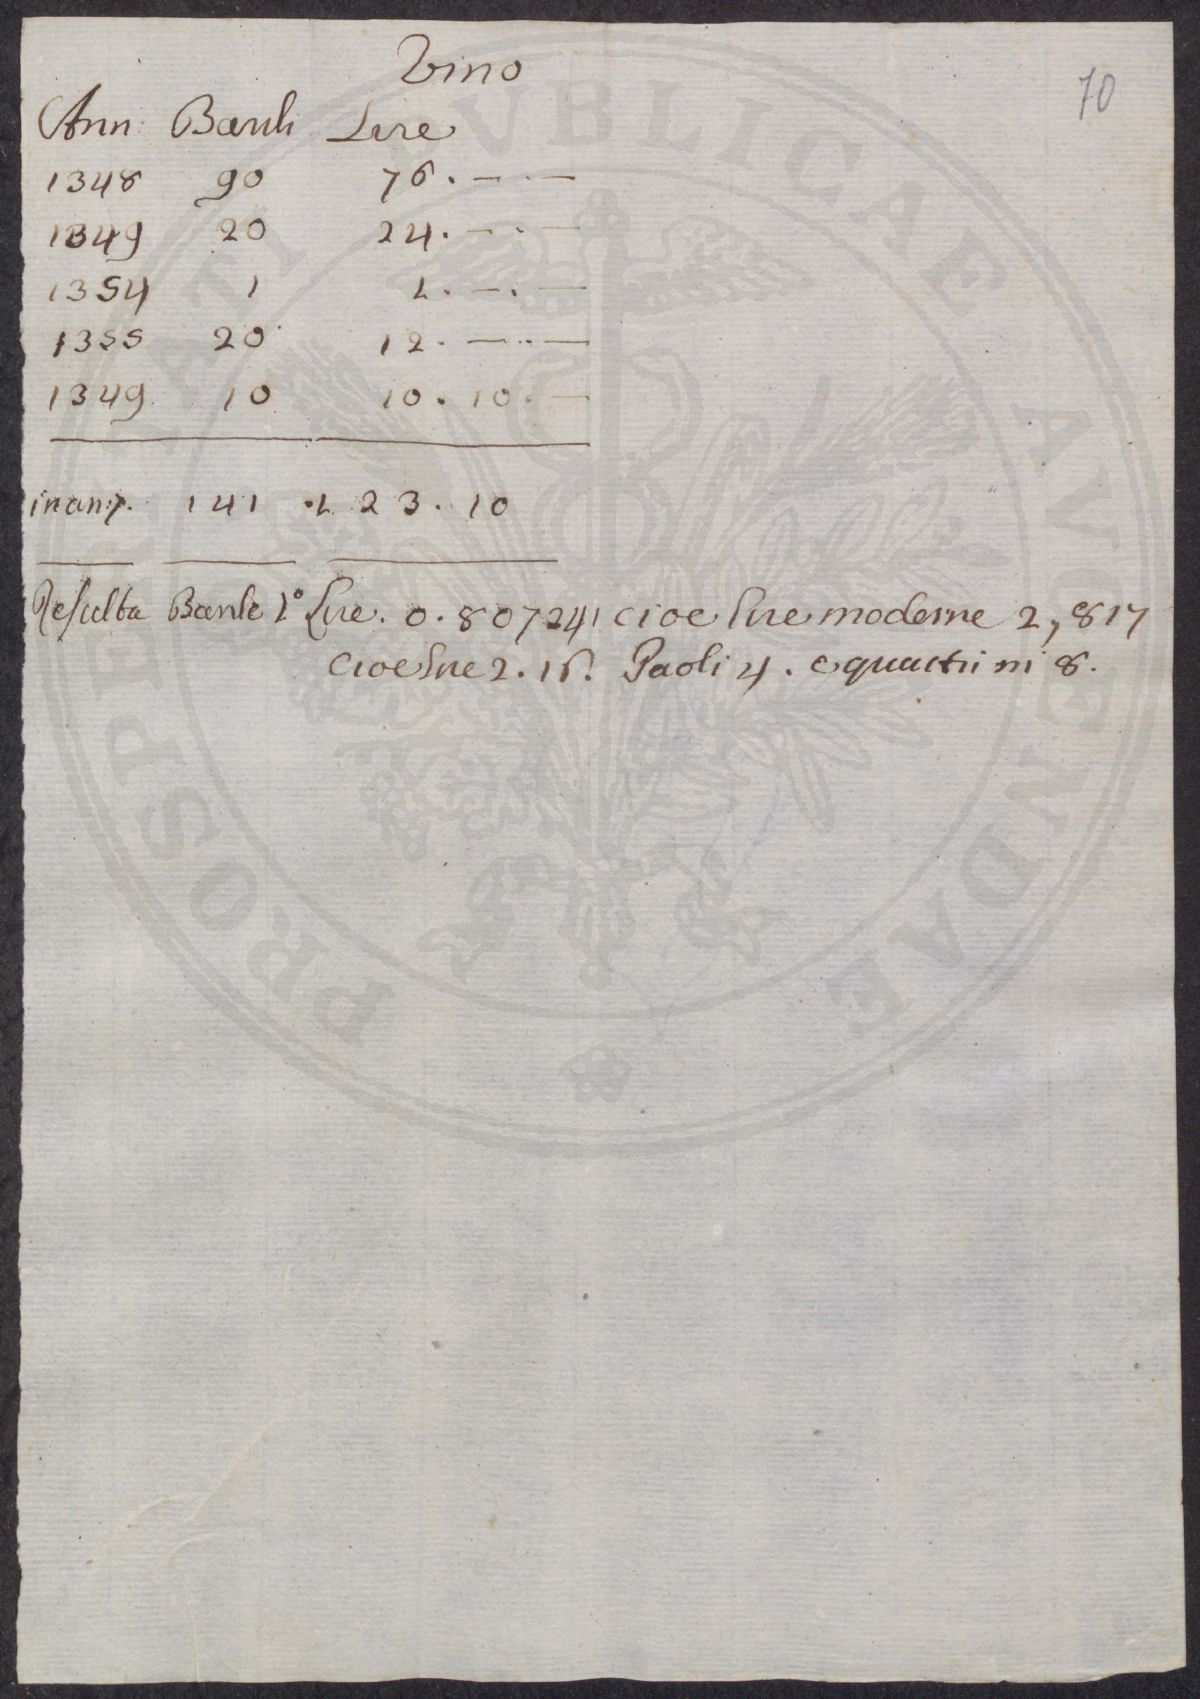 Vino
70
Ann: Barili Lire
1348 90 76. — . —
1349 20 24. — . —
1354 1 1. — . —
1355 20 12. — .. —
1349 10 10. 10. —
in an: 7. 141 . 123. 10
Resulta Barile 1° Lire. 0.807241 cioe lire moderne 2,817
cioe lire 2. 16. Paoli 4. e quattrini 8.
PROSPERITATI PVBLICAE AVGENDAE